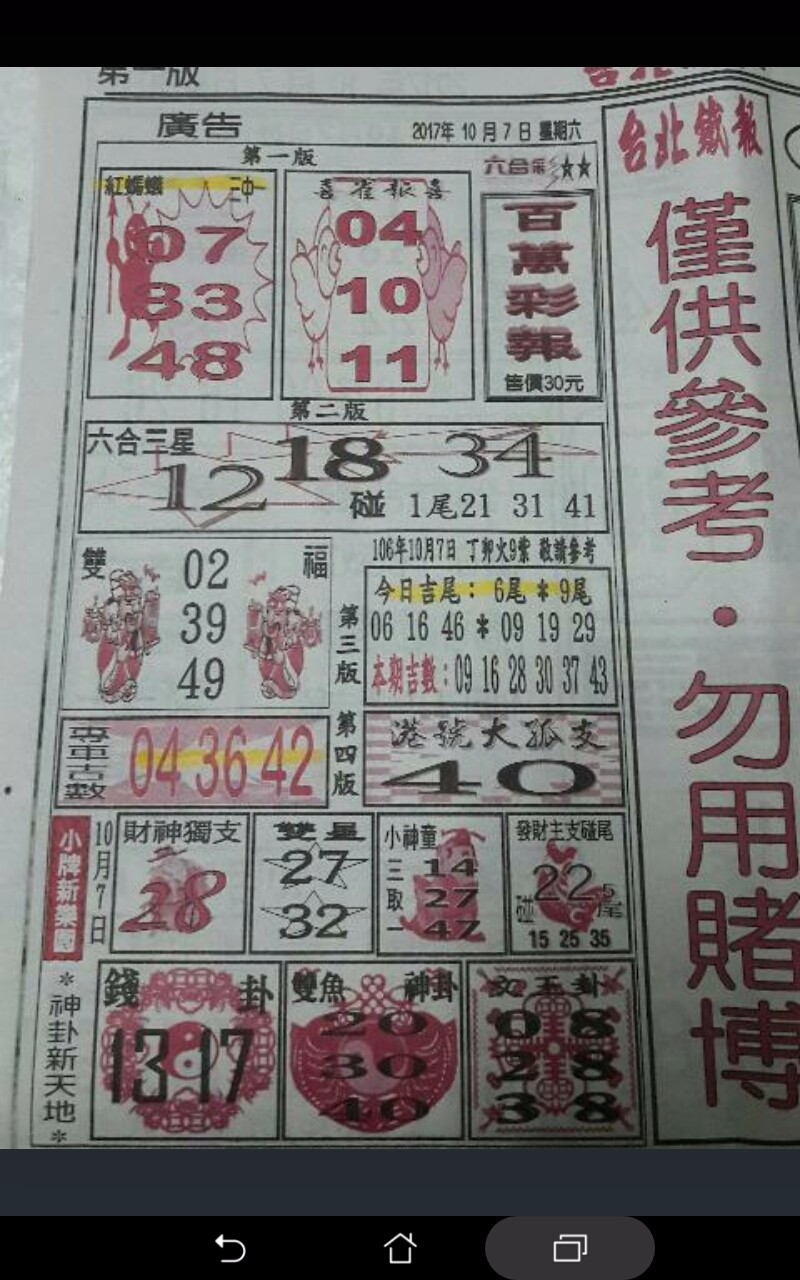 第一版
廣告
2017年 10 月 7 日 星期六
第一版
紅螞蟻 三中一
07
33
48
喜雀報喜
04
10
11
六合彩 ★★
百萬彩報
售價30元
台北鐵報
僅供參考・勿用賭博
第二版
六合三星
12 18 34
碰 1尾21 31 41
雙福
02
39
49
第三版
106年10月7日 丁卯火9紫 敬請參考
今日吉尾: 6尾 * 9尾
06 16 46 * 09 19 29
本期吉數:09 16 28 30 37 43
專車古數
04 36 42
第四版
港號大孤支
40
小牌新樂園
10月7日
財神獨支
28
雙星
27
32
小神童
三取一
14
27
47
發財主支碰尾
22
碰 5尾
15 25 35
*神卦新天地*
錢卦
13 17
雙魚神卦
20
30
40
文王卦
08
28
38